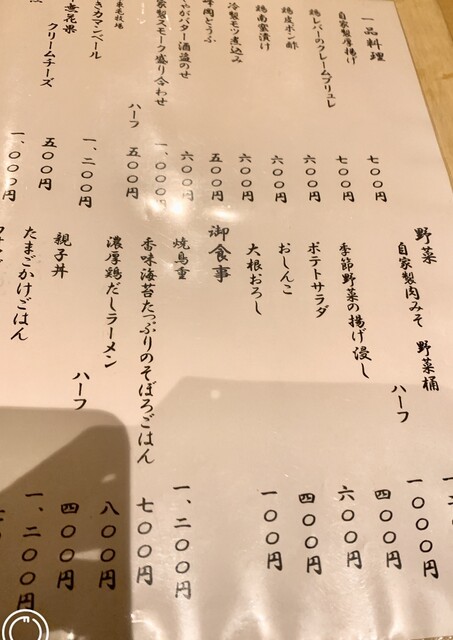 一品料理
自家製厚揚げ
鶏レバーのクレームブリュレ
鶏皮ポン酢
鶏南蛮漬け
冷製モツ煮込み
肉どうふ
じゃがバター 酒盗のせ
家製スモーク盛り合わせ
ハーフ
牧場
きカマンベール
無花果
クリームチーズ
七〇〇円
七〇〇円
六〇〇円
六〇〇円
六〇〇円
五〇〇円
六〇〇円
一、〇〇〇円
五〇〇円
一、二〇〇円
五〇〇円
一、〇〇〇円
野菜
自家製肉みそ 野菜桶
ハーフ
季節野菜の揚げ浸し
ポテトサラダ
おしんこ
大根おろし
御食事
焼鳥重
香味海苔たっぷりのそぼろごはん
濃厚鶏だしラーメン
ハーフ
親子丼
たまごかけごはん
一、〇〇〇円
四〇〇円
六〇〇円
四〇〇円
一〇〇円
一、二〇〇円
七〇〇円
八〇〇円
四〇〇円
一、二〇〇円